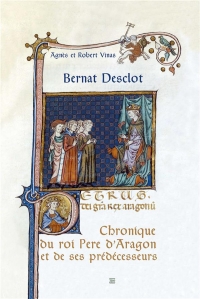 Agnès et Robert Vinas
Bernat Desclot
ETRUS
dei gra rex aragonū
Chronique
du roi Pere d'Aragon
et de ses prédécesseurs